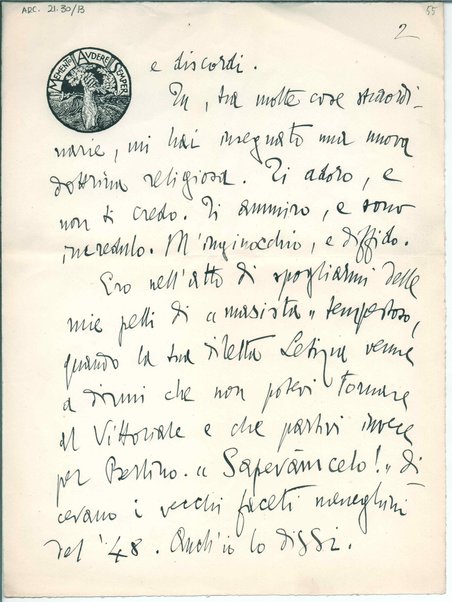 ARC. 21.30/B
55
2
MEMENTO AVDERE SEMPER
e discordi.
Tu, tra molte cose straordi-
narie, mi hai insegnato una nuova
dottrina religiosa. Ti adoro, e
non ti credo. Ti ammiro, e sono
incredulo. M'inginocchio, e diffido.
Ero nell'atto di spogliarmi delle
mie pelli di "masista" tempestoso,
quando la tua diletta Letizia venne
a dirmi che non potevi tornare
al Vittoriale e che partivi invece
per Berlino. "Saperàmcelo!" di
cevano i vecchi faceti meneghini
del '48. Anch'io lo dissi.